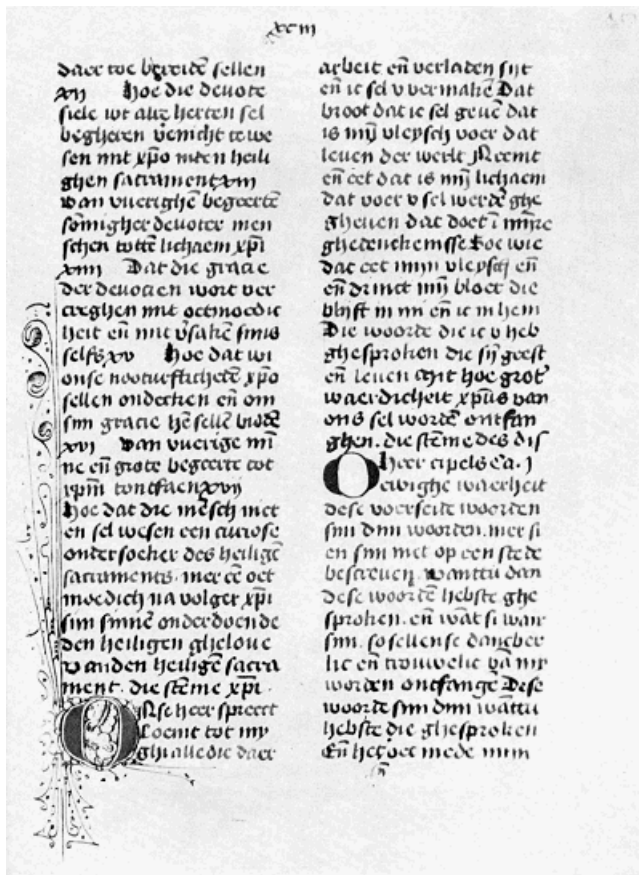 xciii
daer toe bereidē sellen
xij Hoe die devote
siele wt alre herten sel
begheren verlicht te we
sen mit xpō inten heili
ghen sacrament xiii
van vuerighē begeertē
sōmigher devoter men
schen totten lichaem xpī
xiiii Dat die gracie
der devocien wort ver
creghen mit oetmoedic
heit eñ mit vsakē sinus
selfs xv Hoe dat wi
onse nooturfticheidē xpō
sellen ondecken eñ om
sijn gracie hē sellē biddē
xvi van vuerige mī
ne eñ grote begeerte tot
xpīn tontfaen xvij
Hoe dat die mēsch niet
en sel wesen een curiose
ondersoeker des heiligē
sacraments. mer eē oet
moedich na volger xpī
sijn sinnē onderdoende
den heiligen ghelove
vanden heiligē sacra
ment. die stēme xpī.
Onse heer spreect
Coemt tot my
ghi alle die daer
arbeit eñ verladen sijt
eñ ic sel v vermakē Dat
broot dat ic sel gevē dat
is mij vleysch voer dat
leven der werlt Neemt
eñ eet dat is mij lichaem
dat voer v sel werdē ghe
gheven dat doet ī mijre
ghedenckenisse Soe wie
dat eet mijn vleysch eñ
eñ drinct mij bloet die
blijft in mi eñ ic in hem
Die woorde die ic v heb
ghesproken die sij geest
eñ leven Mit hoe grot
waerdicheit xpūs van
ons sel wordē ontfan
ghen. die stēme des dis
O heer cipels ca. j
ewighe waerheit
dese voerseide woorden
sijn dijn woorden. mer si
en sijn niet op een stede
bescreven. wanttu dan
dese woordē hebste ghe
sproken. eñ wāt si waer
sijn. so sellense dancber
lic eñ trouwelic vā my
worden ontfangē Dese
woorde sijn dijn wāttu
hebste die ghesproken
Eñ het oec mede mijn